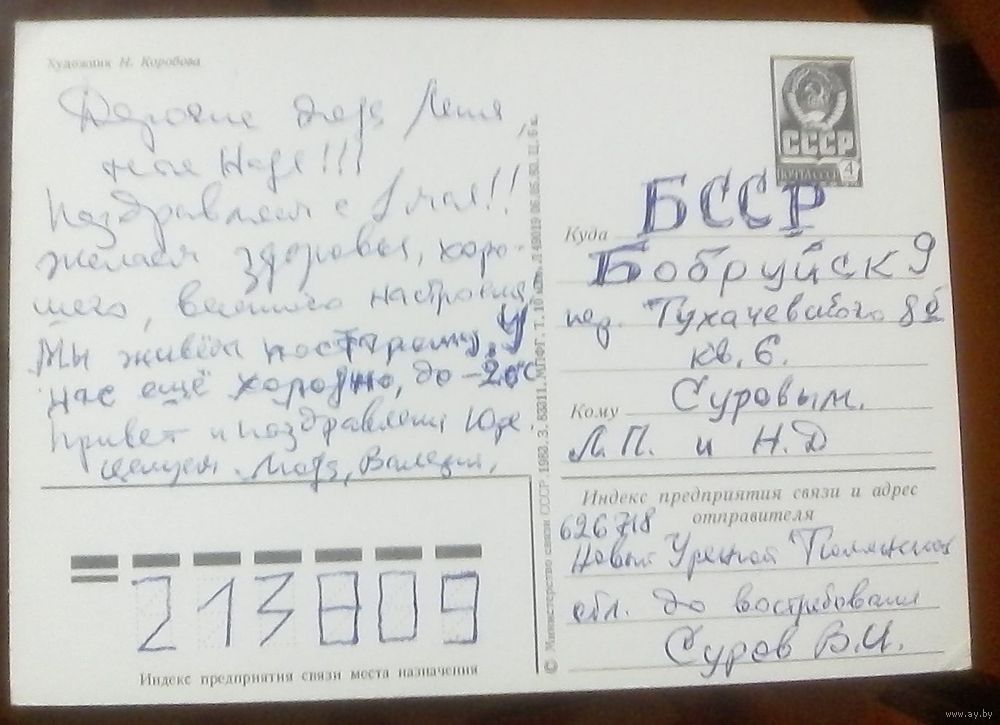 Художник Н. Коробова
Дорогие дядя Леня,
тетя Надя!!!
Поздравляем с 1 мая!!
желаем здоровья, хоро-
шего, весеннего настроения.
Мы живём постарому. У
нас ещё холодно, до -20°С
Привет и поздравления Юре.
Целуем. Люда, Валерий.
213809
Индекс предприятия связи места назначения
© Министерство связи СССР. 1983. З. 83311. МПФГ. Т. 10 млн. Л 49019 06.05.83. Ц. 6 к.
СССР
ПОЧТА СССР 4
Куда БССР
Бобруйск 9
пер. Тухачевского
кв. 6.
Кому Суровым.
Л.П. и Н.Д
Индекс предприятия связи и адрес
отправителя
626718
Новый Уренгой Тюменской
обл. до востребования
Суров В.И.
www.ay.by